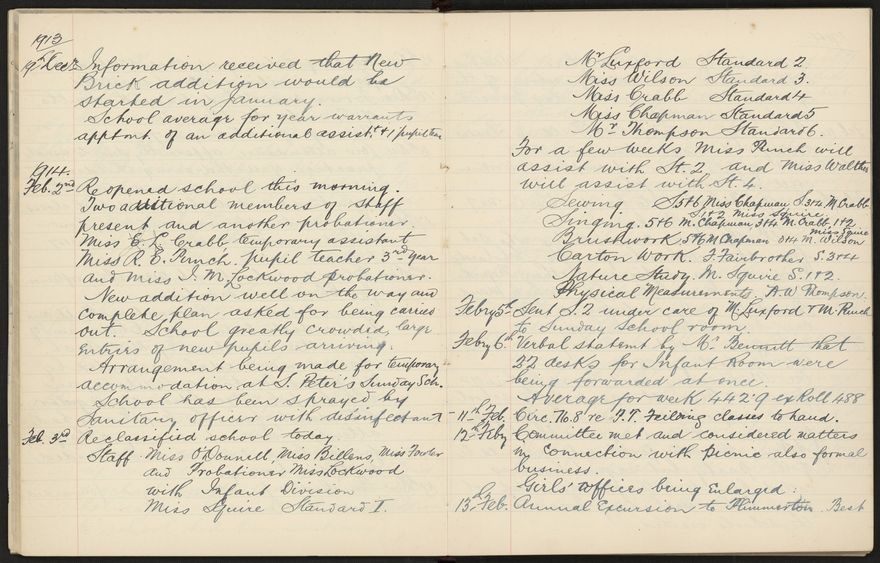 1913
9th Decr Information received that New
Brick addition would be
started in January.
School average for year warrants
apptmt. of an additional assistt. & 1 pupil tear
1914.
Feb. 2nd Reopened school this morning.
Two additional members of staff
present and another probationer
Miss E. L. Crabb temporary assistant
Miss R. E. Punch. pupil teacher 3rd year
and Miss I. M. Lockwood probationer.
New addition well on the way and
complete plan asked for being carried
out. School greatly crowded, large
entries of new pupils arriving.
Arrangement being made for temporary
accommodation at S. Peter's Sunday Sch.
School has been sprayed by
Sanitary officer with disinfectant
Feb. 3rd Reclassified school today.
Staff. Miss O'Donnell, Miss Billens, Miss Fowler
and Probationer Miss Lockwood
with Infant Division
Miss Squire Standard I.
Mr Luxford Standard 2
Miss Wilson Standard 3.
Miss Crabb Standard 4
Miss Chapman Standard 5
Mr. Thompson Standard 6.
For a few weeks Miss Punch will
assist with St. 2 and Miss Walther
will assist with St. 4.
Sewing S5&6 Miss Chapman S3&4 M. Crabb.
S1&2 Miss Squire.
Singing. 5&6 M. Chapman 3&4 M. Crabb 1&2
Miss Squire
Brushwork 5&6 M Chapman 3&4 M. Wilson
Carton Work. F. Fairbrother S. 3&4
Nature Study. M. Squire S. 1&2.
Physical Measurements. A. W Thompson.
Febry 5th Sent S. 2 under care of Mr Luxford & M. Punch
to Sunday School room.
Febry 6th Verbal statemt by Mr Bennett that
22 desks for Infant Room were
being forwarded at once.
Average for week 442.9 ex Roll 488
11th Feb. Circ. 76.8 re F.T. Feilding classes to hand.
12th Feby Committee met and considered matters
in connection with picnic also formal
business.
Girls' offices being Enlarged.
13th Feb. Annual Excursion to Plimmerton. Best